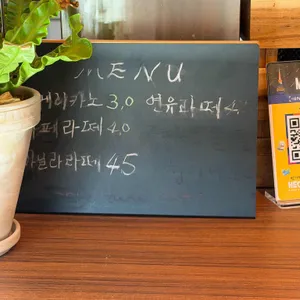 MENU
메리카노 3.0 연유라떼 4
페라떼 4.0
닐라라떼 4.5